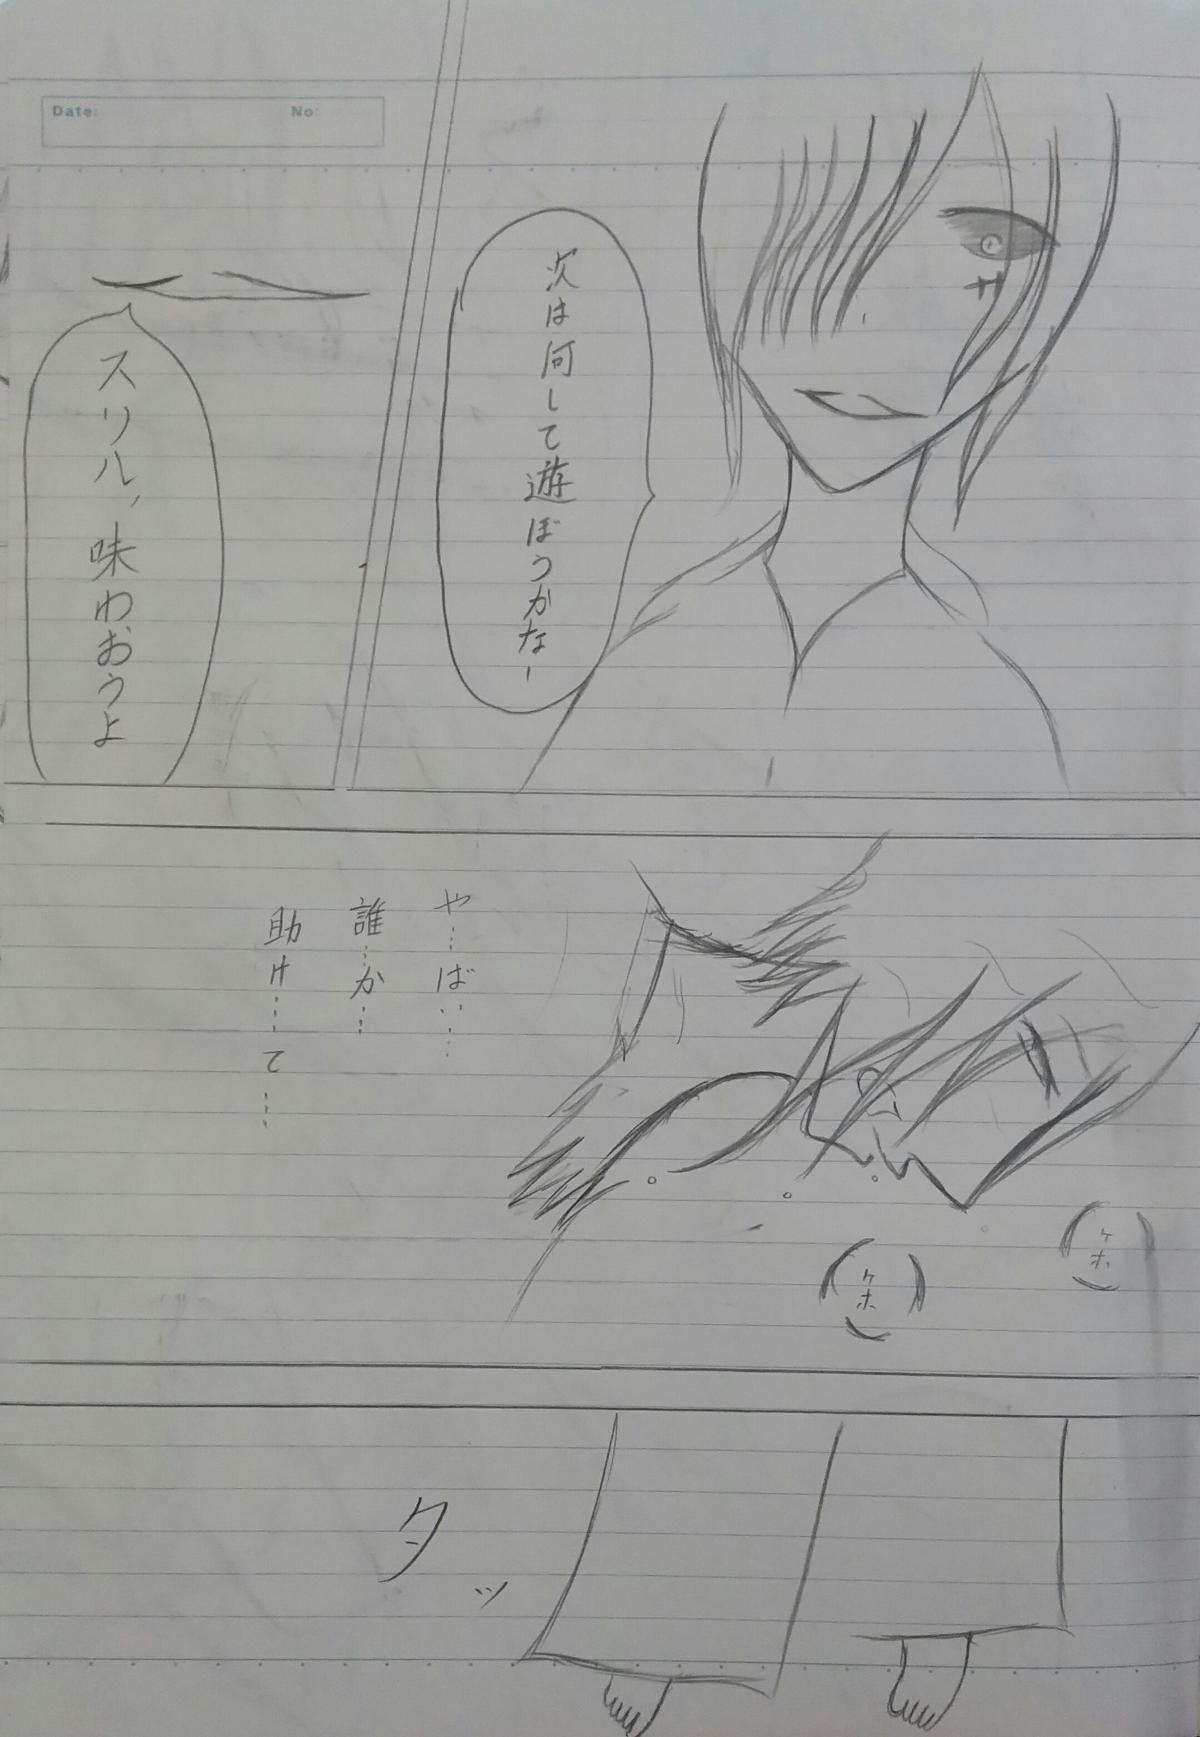 Date:
No:
次は何して遊ぼうかなー
スリル、味わおうよ
や…ば……
誰…か…
助け…て…
ケホ
ケホ
タッ